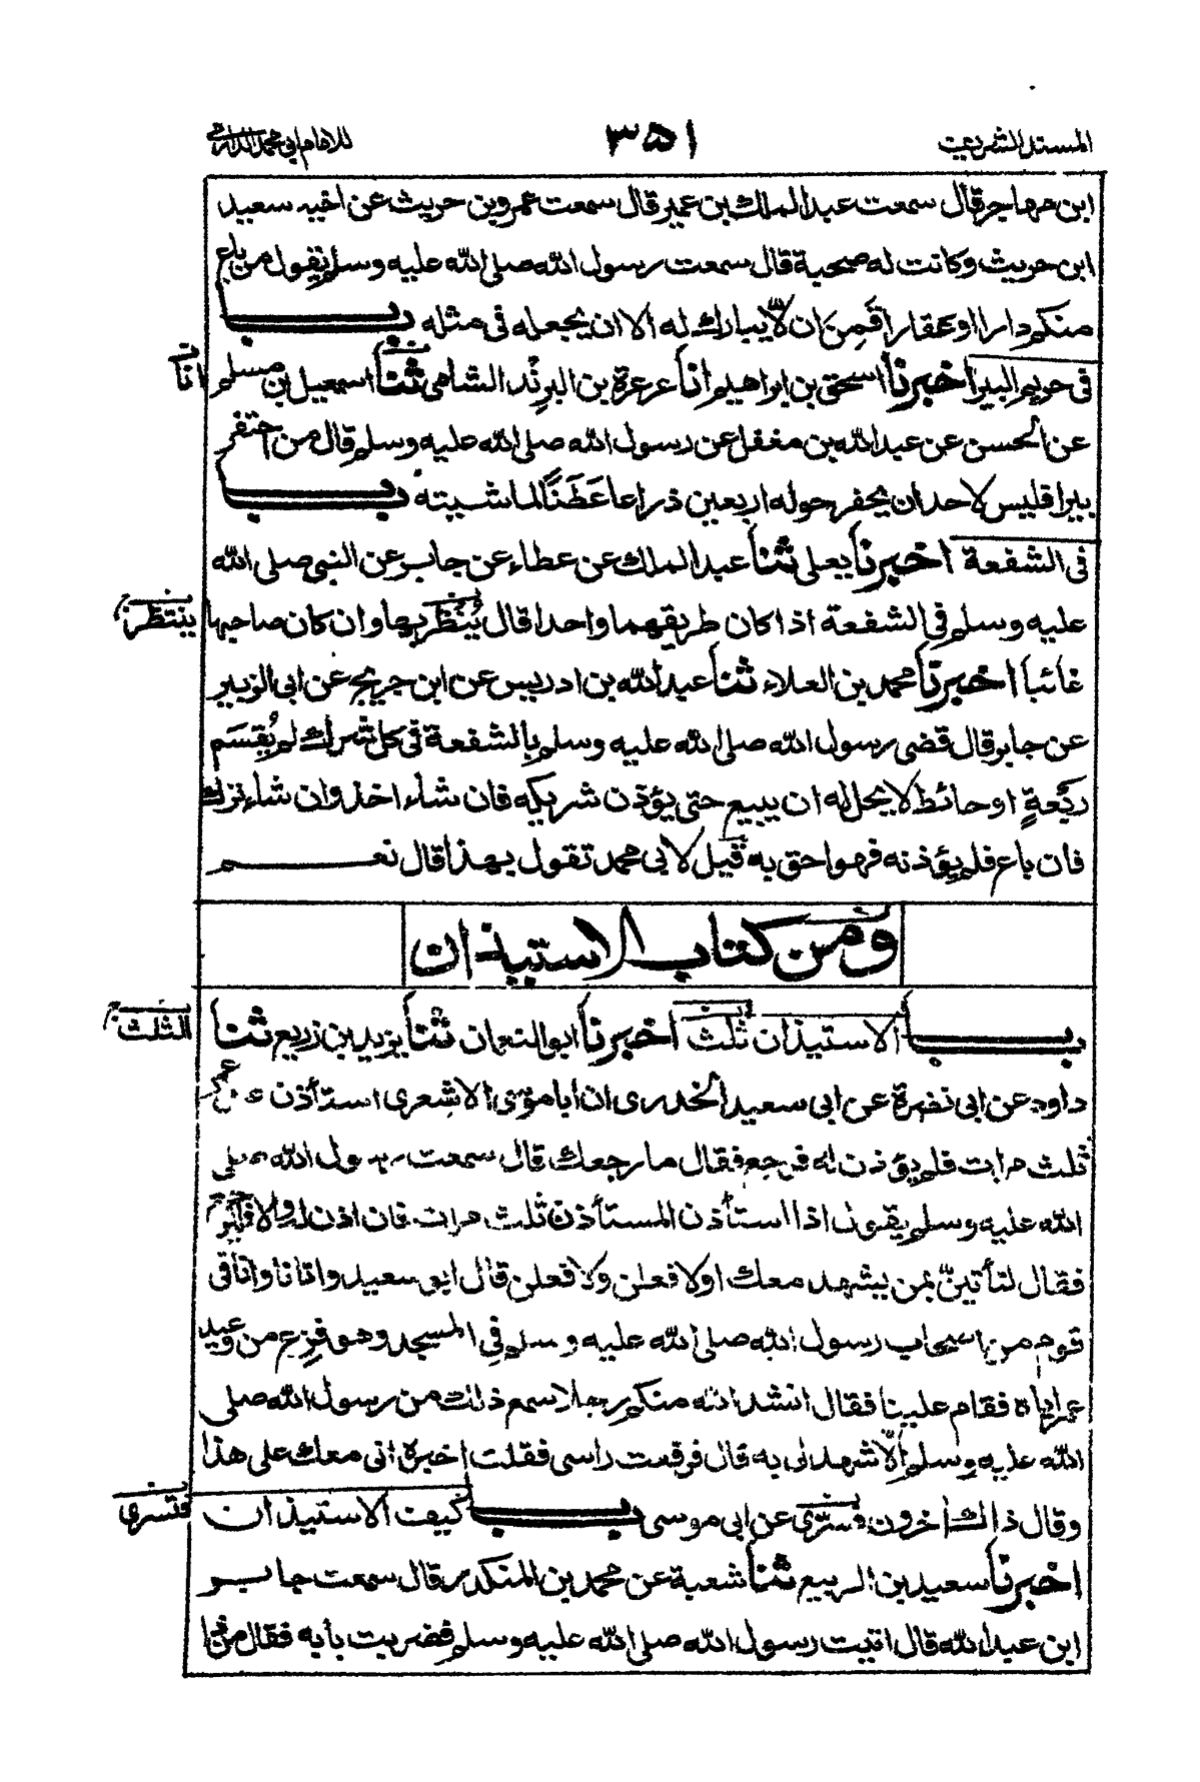 المسند الشريف ٣٥١ للامام ابي محمد الدارمي
ابن مهاجر قال سمعت عبد الملك بن عمير قال سمعت عمرو بن حريث عن اخيه سعيد
ابن حريث وكانت له صحبة قال سمعت رسول الله صلى الله عليه وسلم يقول من باع
منكم دارا او عقارا قَمِنٌ ان لا يبارك له الا ان يجعله في مثله باب
في حريم البير اخبرنا اسحق بن ابراهيم انا عرعرة بن البِرِنْد الشامي ثنا اسمعيل بن مسلم
انا
عن الحسن عن عبد الله بن مغفل عن رسول الله صلى الله عليه وسلم قال من احتفر
بيرا فليس لاحد ان يحفر حوله اربعين ذراعا عَطَنًا لماشيته باب
في الشفعة اخبرنا يعلى ثنا عبد الملك عن عطاء عن جابر عن النبي صلى الله
عليه وسلم في الشفعة اذا كان طريقهما واحدا قال يُنْظَر بها وان كان صاحبها
ينتظر
غائبا اخبرنا محمد بن العلاء ثنا عبد الله بن ادريس عن ابن جريج عن ابى الزبير
عن جابر قال قضى رسول الله صلى الله عليه وسلم بالشفعة في كل شرك لم يُقسَم
ربْعةٍ او حائط لا يحل له ان يبيع حتى يؤذن شريكه فان شاء اخذ وان شاء ترك
فان باع فلم يؤذنه فهو احق به قيل لابي محمد تقول بهذا قال نعم
ومن كتاب الاستيذان
باب الاستيذان ثلث اخبرنا ابو النعمان ثنا يزيد بن زريع ثنا
الثلث
داود عن ابي نضرة عن ابي سعيد الخدرى ان ابا موسى الاشعرى استأذن على عمر
ثلث مرات فلم يؤذن له فرجع فقال ما رجعك قال سمعت رسول الله صلى
الله عليه وسلم يقول اذا استأذن المستأذن ثلث مرات فان اذن له والا فليرجع
فقال لتأتينّ بمن يشهد معك او لافعلن ولافعلن قال ابو سعيد واتانا وانا في
قوم من اصحاب رسول الله صلى الله عليه وسلم في المسجد وهو فزِع من وعيد
عمر اياه فقام علينا فقال انشد الله منكم رجلا سمع ذلك من رسول الله صلى
الله عليه وسلم الّا شهد لي به قال فرفعت راسى فقلت اخبره انى معك على هذا
وقال ذالك اخرون فسُرّى عن ابى موسى باب كيف الاستيذان
فتسرى
اخبرنا سعيد بن الربيع ثنا شعبة عن محمد بن المنكدر قال سمعت جابر
ابن عبد الله قال اتيت رسول الله صلى الله عليه وسلم فضربت بابه فقال من ذا